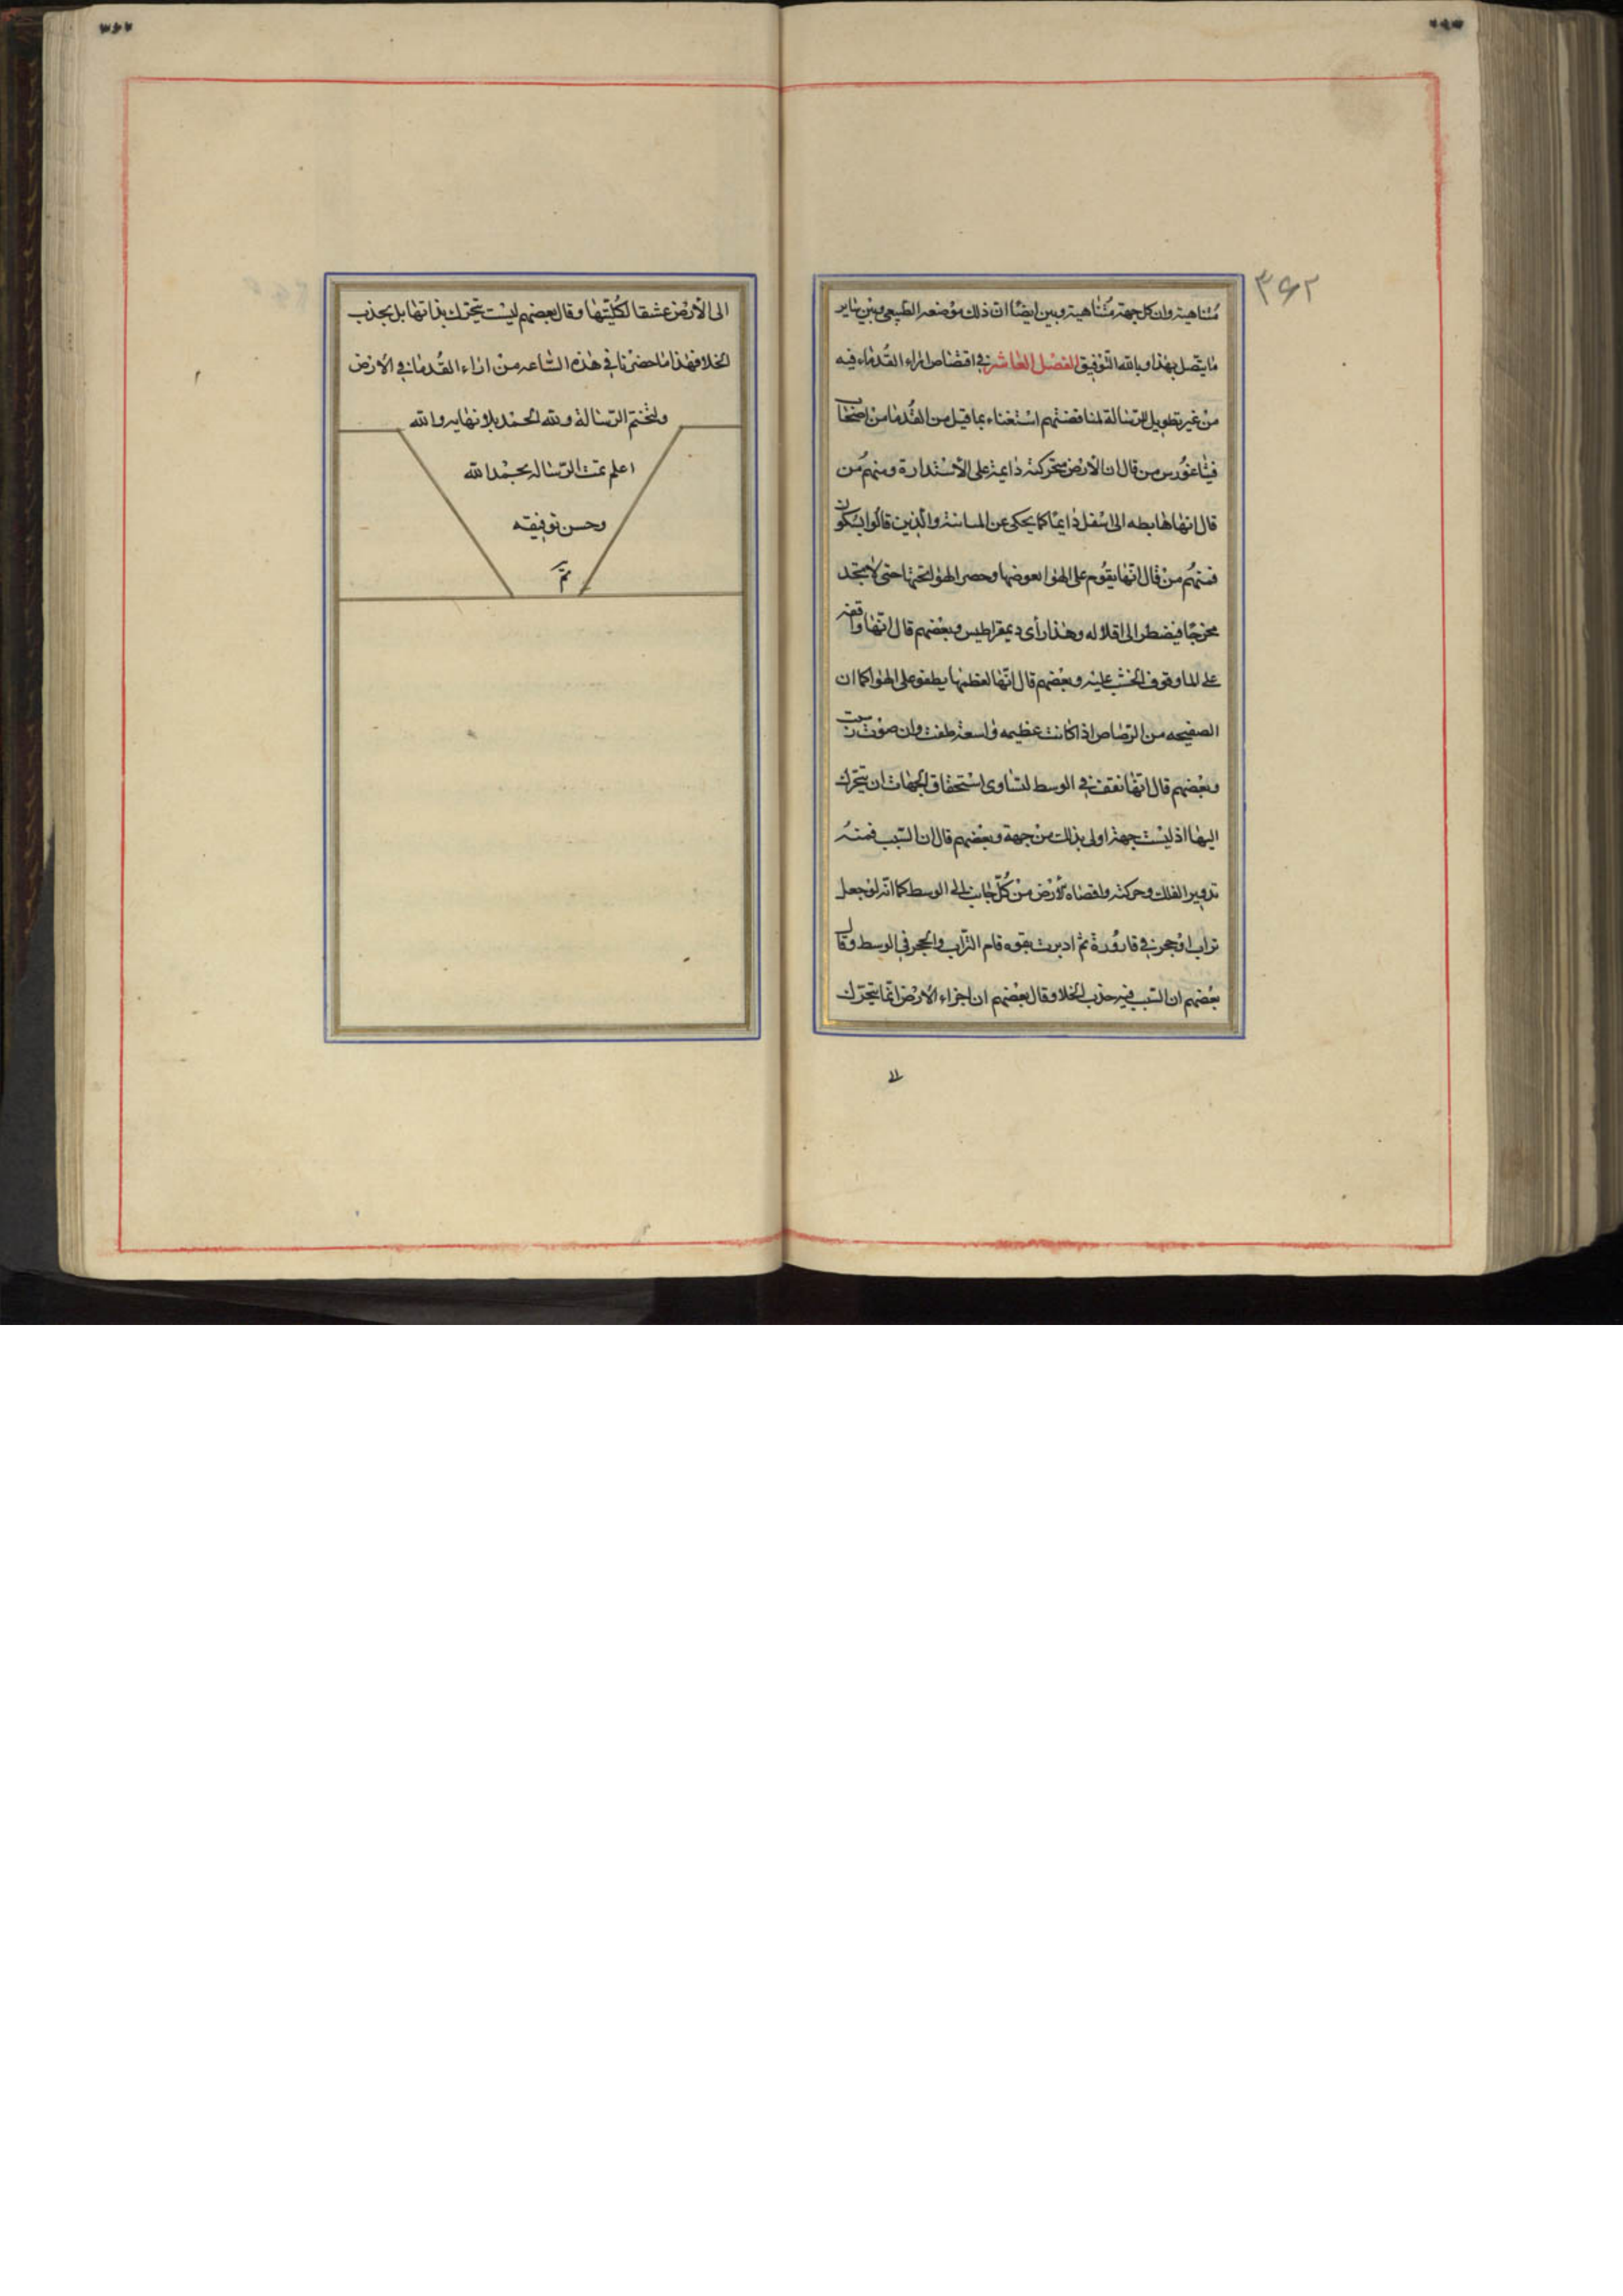 ٣٤٢
متناهية وان كل جهة متناهية وبين ايضا ان ذلك موضعه الطبيعي وبين ساير
ما يتصل بهذا وبالله التوفيق الفصل العاشر في اقتصاص اراء القدماء فيه
من غير تطويل الرسالة لمناقضتهم استغناء بما قيل من القدماء من اصحاب
فيثاغورس من قال ان الارض متحركة دايمة على الاستدارة ومنهم من
قال انها هابطه الى اسفل دايما كما يحكى عن والذين قالوا بسكون
فمنهم من قال انها يقوم على الهوا بعوضها وحصر الهوا تحتها حتى لا يجد
مخرجا فيضطر الى اقلاله وهذا رأى ديمقراطيس وبعضهم قال انها واقفه
على الما وقوف الخشب عليه وبعضهم قال انها لعظمها يطفو على الهوا كما ان
الصفيحه من الرصاص اذا كانت عظيمه واسعة طفت وان
وبعضهم قال انها تقف في الوسط لتساوى استحقاق الجهات ان يتحرك
اليها اذ ليست جهة اولى بذلك من جهة وبعضهم قال ان السبب فمنه
تدوير الفلك وحركته واقتضاه للارض من كل جانب الى الوسط كما انه لو جعل
تراب او حجر في قارورة ثم اديرت بقوه قام التراب والحجر في الوسط وقال
بعضهم ان السبب فيه جذب الخلا وقال بعضهم ان اجزاء الارض انما يتحرك
الى
الى الارض عشقا لكليتها وقال بعضهم ليست يتحرك بذاتها بل بجذب
الخلا فهذا ما حضرنا في هذه الساعه من اراء القدما في الارض
ولنختم الرسالة ولله الحمد بلا نهايه والله
اعلم تمت الرساله بحمد الله
وحسن توفيقه
تم